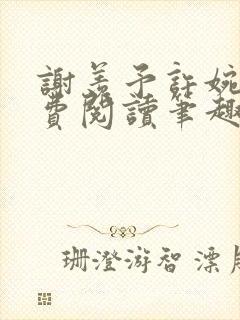 謝羨予許婉
費閱讀筆趣
珊澄游智漂